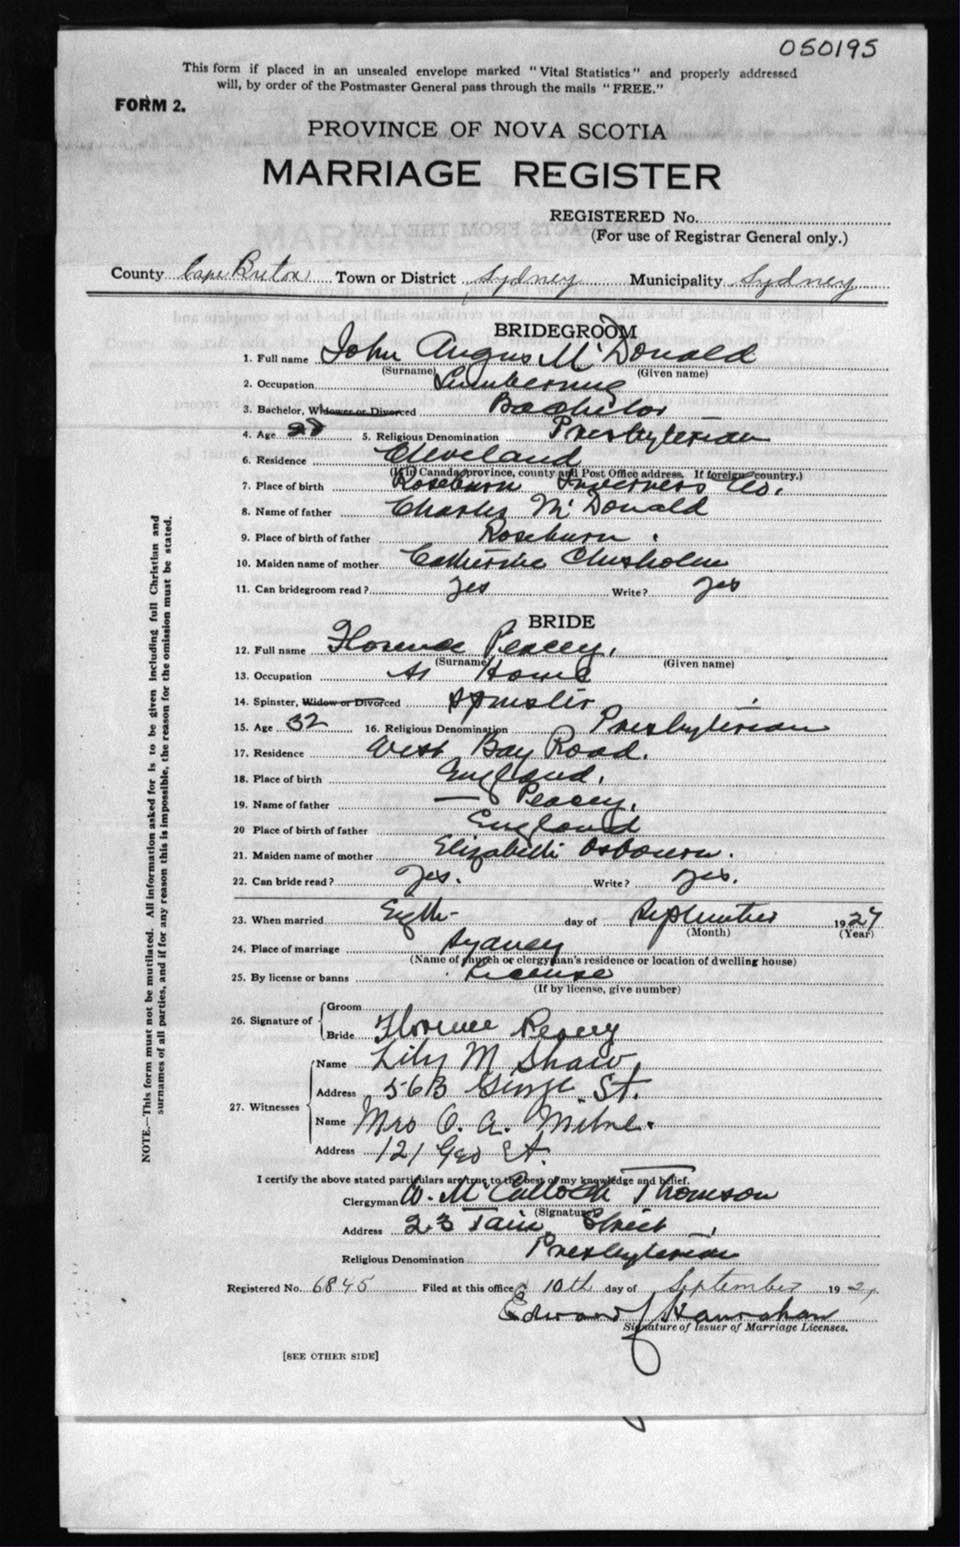 050195
This form if placed in an unsealed envelope marked "Vital Statistics" and properly addressed
will, by order of the Postmaster General pass through the mails "FREE."
FORM 2.
PROVINCE OF NOVA SCOTIA
MARRIAGE REGISTER
REGISTERED No.
(For use of Registrar General only.)
County Cape Breton Town or District Sydney Municipality Sydney
BRIDEGROOM
1. Full name John Angus McDonald
(Surname) (Given name)
2. Occupation Lumbering
3. Bachelor, Widower or Divorced Bachelor
4. Age 28 5. Religious Denomination Presbyterian
6. Residence Cleveland
(If in Canada, province, county and Post Office address. If foreign country.)
7. Place of birth Roseburn Inverness Co.
8. Name of father Charles McDonald
9. Place of birth of father Roseburn.
10. Maiden name of mother Catherine Chisholm
11. Can bridegroom read? Yes Write? Yes
BRIDE
12. Full name Florence Peacey.
(Surname) (Given name)
13. Occupation At Home
14. Spinster, Widow or Divorced Spinster
15. Age 32 16. Religious Denomination Presbyterian
17. Residence West Bay Road.
18. Place of birth England.
19. Name of father — Peacey.
20 Place of birth of father England
21. Maiden name of mother Elizabeth Osbourn.
22. Can bride read? Yes. Write? Yes.
23. When married day of September 1927
(Month) (Year)
24. Place of marriage Sydney
(Name of church or clergyman's residence or location of dwelling house)
25. By license or banns License
(If by license, give number)
26. Signature of Groom
Bride Florence Peacey
27. Witnesses
Name Lily M Shaw
Address 56B George St.
Name Mrs C. A. Milne.
Address 121 Geo St.
I certify the above stated particulars are true to the best of my knowledge and belief.
Clergyman W. McCulloch Thomson
(Signature)
Address 23 Street
Religious Denomination Presbyterian
Registered No. 6845 Filed at this office 10th day of September 192
Edward J Hanrahan
Signature of Issuer of Marriage Licenses.
[SEE OTHER SIDE]
NOTE.—This form must not be mutilated. All information asked for is to be given including full Christian and
surnames of all parties, and if for any reason this is impossible, the reason for the omission must be stated.